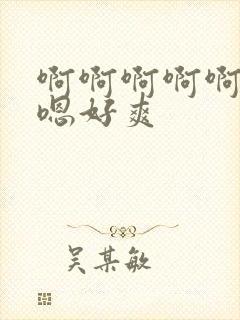 啊啊啊啊啊
嗯好爽
吴某敏